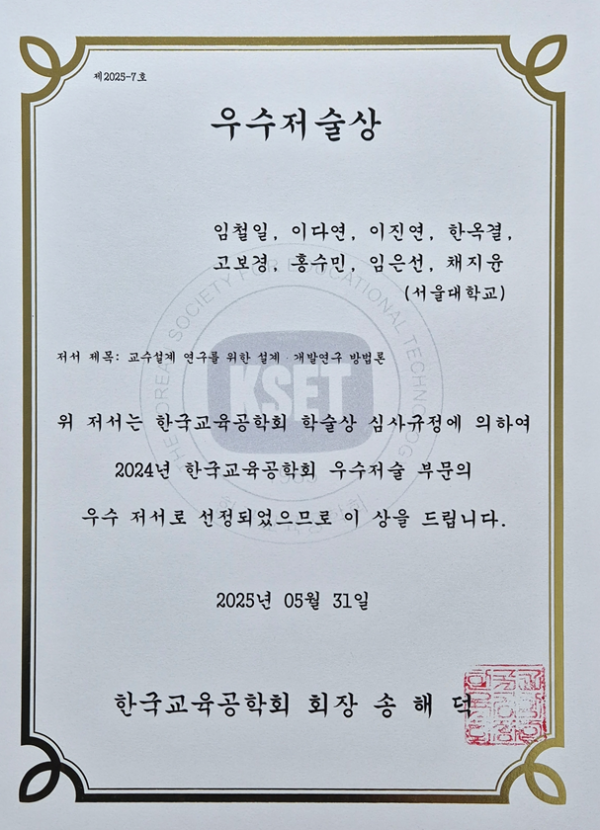 제2025-7호
우수저술상
임철일, 이다연, 이진연, 한옥결,
고보경, 홍수민, 임은선, 채지윤
(서울대학교)
THE KOREAN SOCIETY FOR EDUCATIONAL TECHNOLOGY
저서 제목: 교수설계 연구를 위한 설계·개발연구 방법론
KSET
위 저서는 한국교육공학회 학술상 심사규정에 의하여
2024년 한국교육공학회 우수저술 부문의
우수 저서로 선정되었으므로 이 상을 드립니다.
2025년 05월 31일
한국교육공학회 회장 송 해 덕